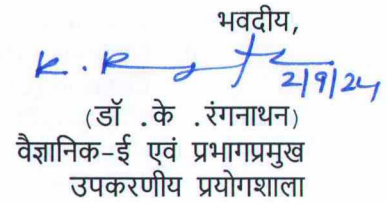 भवदीय,
K. R
2/9/24
(डॉ .के .रंगनाथन)
वैज्ञानिक-ई एवं प्रभागप्रमुख
उपकरणीय प्रयोगशाला